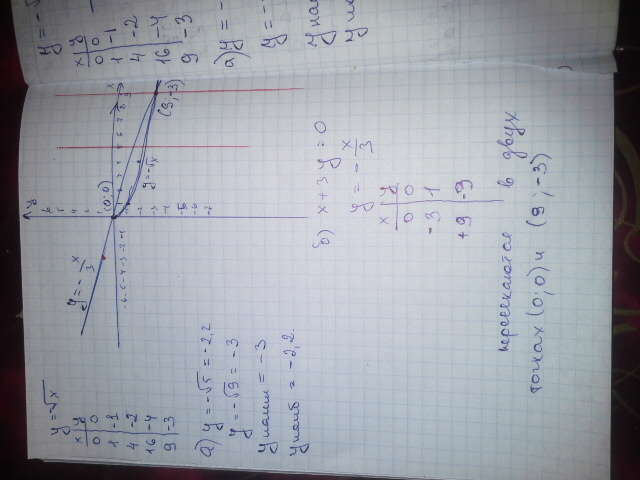 y = √x
x y
0 0
1 -1
4 -2
16 -4
9 -3
y = -x/3
(0;0)
y = -√x
(9;-3)
а) y = -√5 = -2,2
y = -√9 = -3
y наим = -3
y наиб = -2,2
б) x + 3y = 0
y = -x/3
x y
0 0
-3 1
+9 -3
пересекаются в двух
точках (0;0) и (9;-3)
x y
0 0
1 -1
4 -2
16 -4
9 -3
а) y = -
y = -
y на
y на